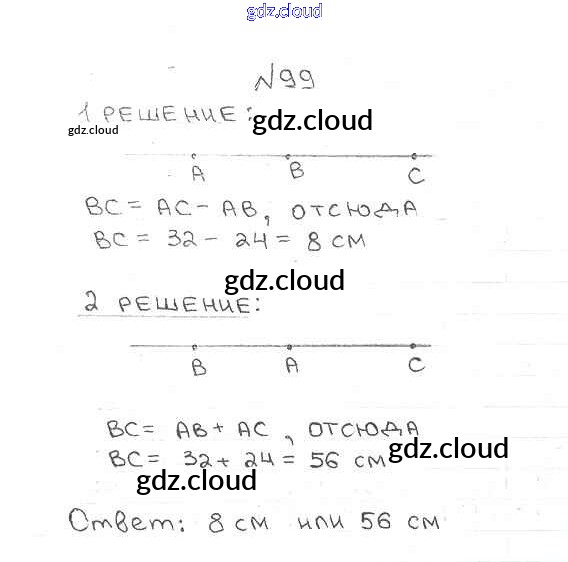 gdz.cloud
N99
1 РЕШЕНИЕ: gdz.cloud
gdz.cloud
A B C
BC = AC - AB, ОТСЮДА
BC = 32 - 24 = 8 см
gdz.cloud
2 РЕШЕНИЕ:
B A C
BC = AB + AC, ОТСЮДА
BC = 32 + 24 = 56 см gdz.cloud
gdz.cloud
Ответ: 8 см или 56 см